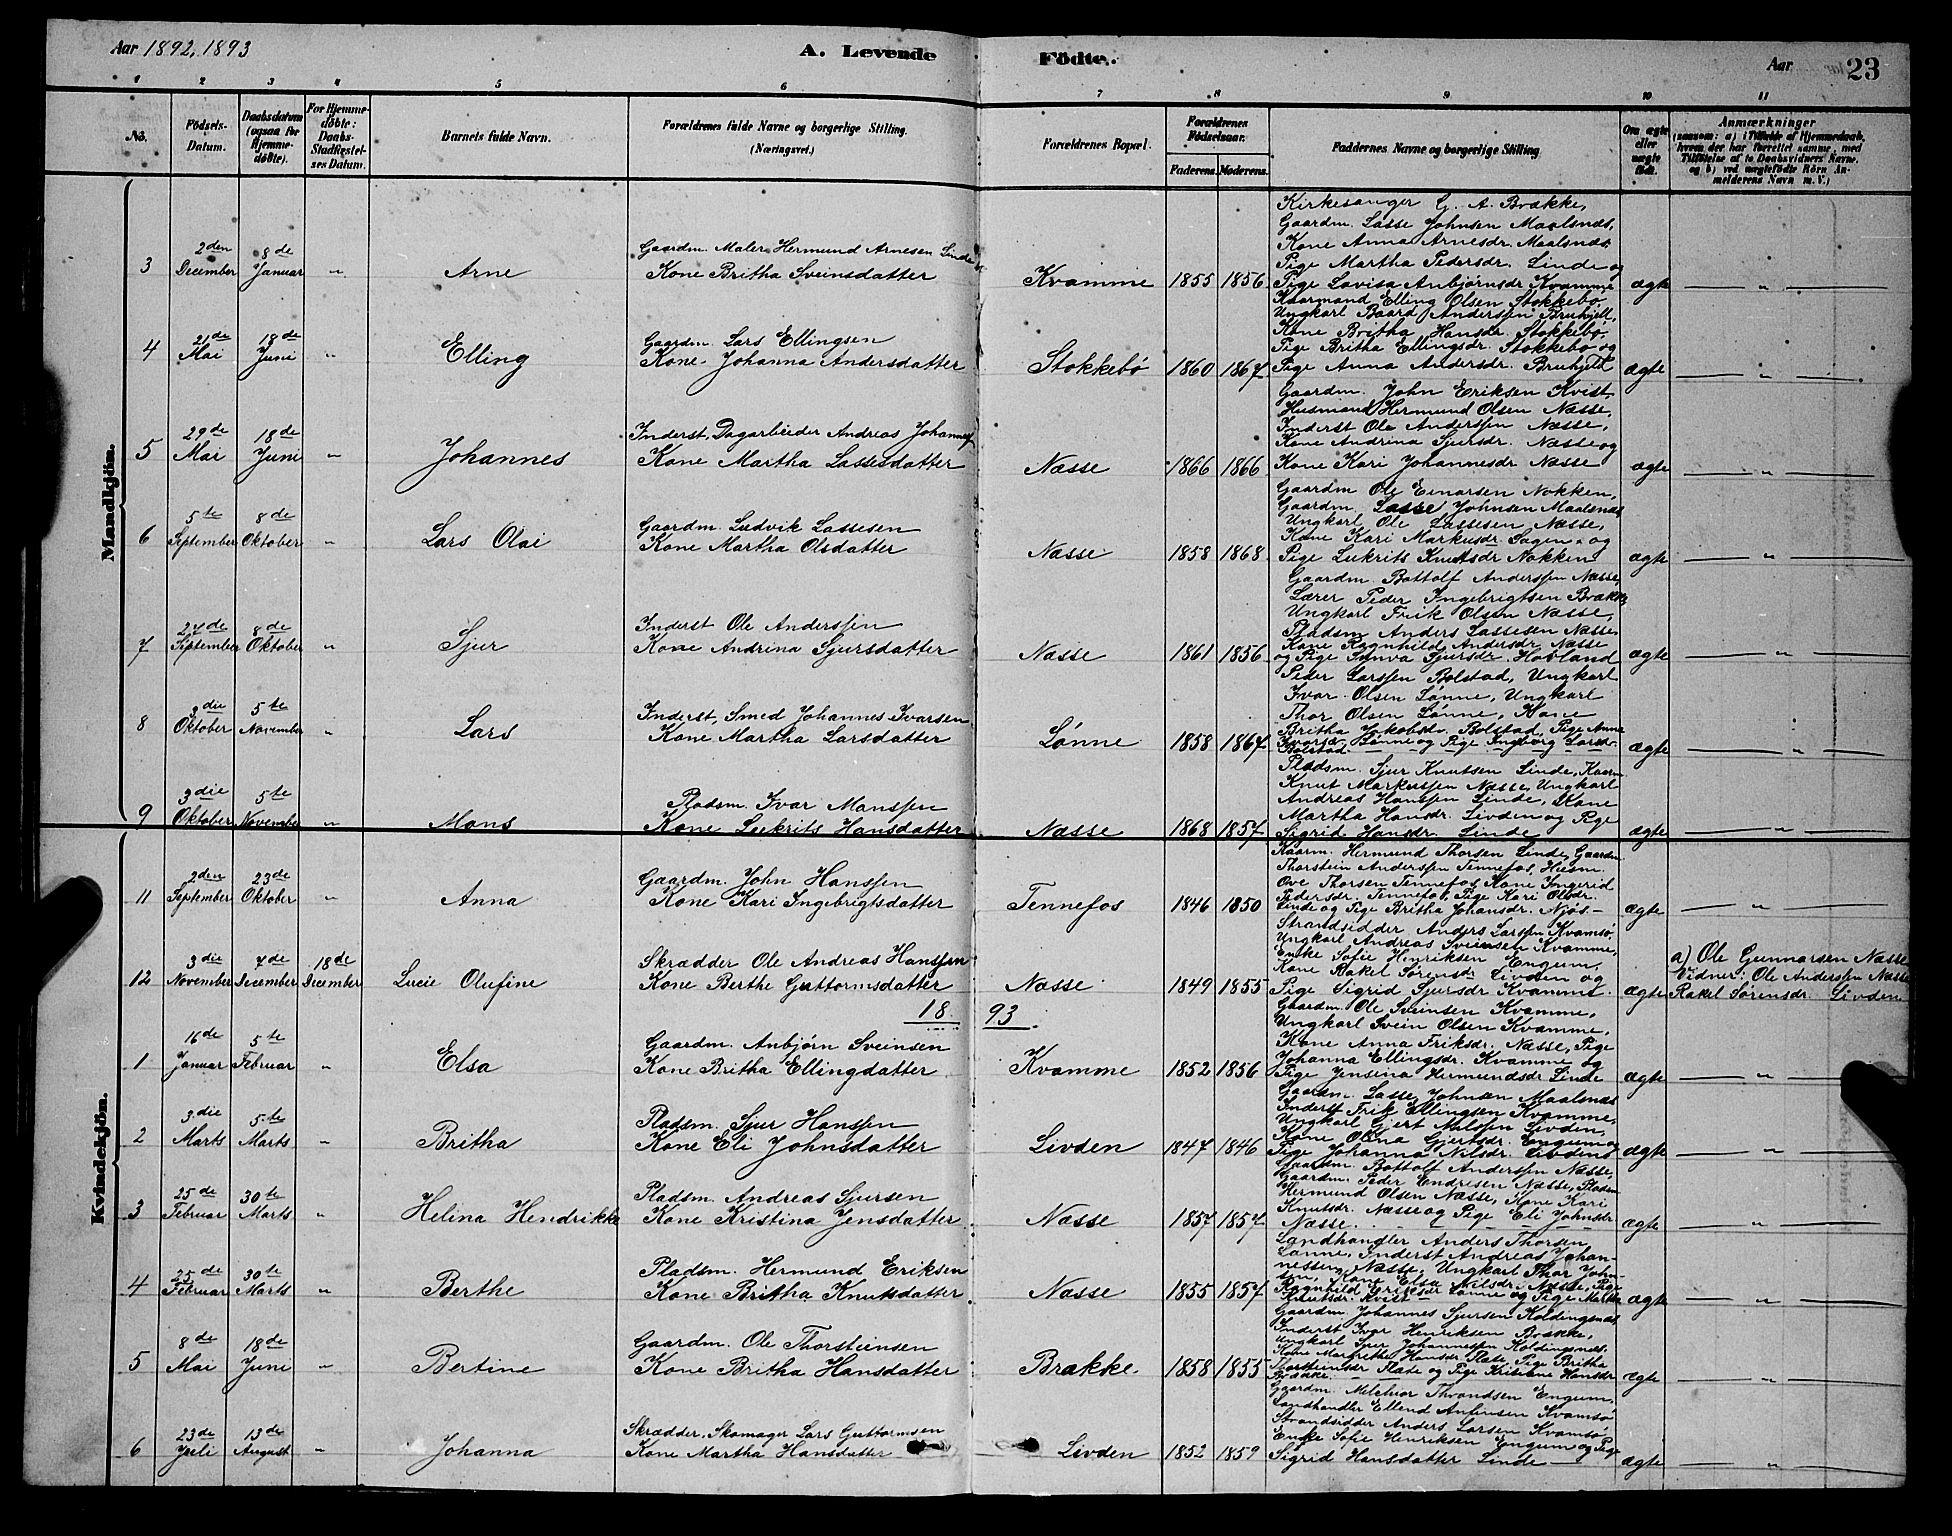 Aar 1892, 1893
A. Levende
Födte.
Aar
23
1 2 3 4 5 6 7 8 9 10 11
No.
Födsels-
Datum.
Daabsdatum
(ogsaa for
Hjemme-
døbte).
For Hjemme-
døbte:
Daabs-
Stadfæstel-
ses Datum.
Barnets fulde Navn.
Forældrenes fulde Navne og borgerlige Stilling.
(Næringsvei.)
Forældrenes Bopæl.
Forældrenes
Fødselsaar.
Faderens. Moderens.
Faddernes Navne og borgerlige Stilling
Om ægte
eller
uægte
født.
Anmærkninger
(saasom: a) i Tilfælde af Hjemmedaab,
hvem der har forrettet samme, med
Tilföielse af to Daabsvidners Navne,
og b) ved uægtefödte Börn An-
melderens Navn m. V.)
Mandkjön.
3
2den
December
8de
Januar
"
Arne
Gaardm. Maler Hermund Arnesen Linde
Kone Britha Sveinsdatter
Kvamme
1855 1856
Kirkesanger G. A. Brække,
Gaardm. Lasse Johnsen Maalsnæs,
Kone Anna Arnesdr. Maalsnæs
Pige Martha Pedersdr. Linde og
Pige Lovisa Anbjørnsdr Kvamme
ægte
"
4
21de
Mai
18de
Juni
"
Elling
Gaardm. Lars Ellingsen
Kone Johanna Andersdatter
Stokkebø
1860 1867
Kaarmand Elling Olsen Stokkebø
Ungkarl Baard Anderssen Bruhjell,
Kone Britha Hansdr. Stokkebø
Pige Britha Ellingsdr. Stokkebø og
Pige Anna Andersdr. Bruhjell
ægte
"
5
29de
Mai
18de
Juni
"
Johannes
Inderst, Dagarbeider Andreas Johannes
Kone Martha Lassesdatter
Næsse
1866 1866
Gaardm. John Eriksen Kvist,
Husmand Hermund Olsen Næsse,
Inderst Ole Anderssen Næsse,
Kone Andrina Sjursdr. Næsse og
Kone Kari Johannesdr Næsse
ægte
"
6
5te
September
8de
Oktober
"
Lars Olai
Gaardm. Ludvik Lassesen
Kone Martha Olsdatter
Næsse
1858 1868
Gaardm Ole Einarsen Nokken,
Gaardm. Lasse Johnsen Maalsnæs
Ungkarl Ole Lassesen Næsse,
Kone Kari Markusdr. Sagen og
Pige Lukrits Knutsdr Nokken
ægte
"
7
27de
September
8de
Oktober
"
Sjur
Inderst Ole Anderssen
Kone Andrina Sjursdatter
Næsse
1861 1856
Gaardm. Bottolf Anderssen Næsse,
Lærer Peder Ingebrigtsen Brække
Ungkarl Erik Olsen Næsse,
Pladsm Anders Lassesen Næsse
Kone Ragnhild Andersdr. Næsse
og Pige Synva Sjursdr. Hovland
ægte
"
8
3die
Oktober
5te
November
"
Lars
Inderst, Smed Johannes Ivarsen
Kone Martha Larsdatter
Lønne
1858 1867
Peder Larssen Bolstad, Ungkarl
Ivar Olsen Lønne, Ungkarl
Thor Olsen Lønne, Kone
Britha Jokobsdr. Bolstad, Pige Anna
Ivarsdr. Lønne og Pige Ingborg Larsd.
Bolstad
ægte
"
9
3die
Oktober
5te
November
"
Mons
Pladsm. Ivar Monssen
Kone Lukrits Hansdatter
Næsse
1868 1857
Pladsm. Sjur Knutsen Linde, Kaarm.
Knut Markussen Næsse, Ungkarl
Andreas Hanssen Linde, Kone
Martha Hansdr. Livden og Pige
Sigrid Hansdr. Linde
ægte
"
Kvindekjön.
11
2den
September
23de
Oktober
"
Anna
Gaardm. John Hanssen
Kone Kari Ingebrigtsdatter
Tennefos
1846 1850
Kaarm. Hermund Thorsen Linde, Gaardm.
Thorstein Anderssen Tennefos, Husm.
Ove Thorsen Tennefos, Kone Ingerid
Pedersdr. Tennefos, Pige Kari Olsdr.
Linde og Pige Britha Johansdr. Njøs
ægte
"
12
3die
November
4de
December
18de
December
Lucie Olufine
Skrædder Ole Andreas Hanssen
Kone Berthe Guttormsdatter
Næsse
1849 1855
Strandsidder Anders Larssen Kvamsø
Ungkarl Andreas Sveinsen Kvamme,
Enke Sofie Henriksen Engum,
Kone Rakel Sørensdr Livden og
Pige Sigrid Sjursdr Kvamme
ægte
a) Ole Gunnarsen Næsse
Vidner: Ole Anderssen Næsse
Rakel Sørensdr. Livden
18 93
1
16de
Januar
5te
Februar
"
Elsa
Gaardm. Anbjørn Sveinsen
Kone Britha Ellingdatter
Kvamme
1852 1856
Gaardm. Ole Sveinsen Kvamme,
Ungkarl Svein Olsen Kvamme,
Kone Anna Eriksdr. Næsse, Pige
Johanna Ellingsdr. Kvamme og
Pige Jensina Hermundsdr Linde
ægte
"
2
3die
Marts
5te
Marts
"
Britha
Pladsm. Sjur Hanssen
Kone Eli Johnsdatter
Livden
1847 1846
Gaardm. Lasse Johnsen Maalsnæs
Inderst Erik Ellingsen Kvamme,
Ungkarl Gjert Nilssen Livden,
Kone Olina Gjertsdr. Engum og
Pige Johanna Nilsdr. Livden
ægte
"
3
25de
Februar
30te
Marts
"
Helina Hendrikke
Pladsm. Andreas Sjursen
Kone Kristina Jensdatter
Næsse
1857 1857
Gaardm. Bottolf Anderssen Næsse,
Gaardm. Peder Endresen Næsse, Pladsm
Hermund Olsen Næsse, Kone Kari
Knutsdr. Næsse og Pige Eli Johnsdr
Næsse.
ægte
"
4
25de
Februar
30te
Marts
"
Berthe
Pladsm. Hermund Eriksen
Kone Britha Knutsdatter
Næsse
1855 1857
Landhandler Anders Thorsen
Lønne, Inderst Andreas Johan-
nessen Næsse, Ungkarl Thor John-
sen, Kone Elsa Nilsdr. Næsse, Pige
Ragnhild Eriksdr Lønne og Pige Martha
Knutsdr. Kvist
ægte
"
5
8de
Mai
18de
Juni
"
Bertine
Gaardm. Ole Thorsteinsen
Kone Britha Hansdatter
Brække.
1858 1855
Gaardm. Johannes Sjursen Holdingsnæs,
Inderst Ivar Henriksen Brække,
Ungkarl Sjur Johannessen Holdingsnæs.
Kone Margrethe Hansdr. Flate, Pige Britha
Thorsteinsdr Flade og Pige Kristiane Hansdr
Brække.
ægte
"
6
23de
Juli
13de
August
"
Johanna
Skrædder, Skomager Lars Guttormsen
Kone Martha Hansdatter
Livden
1852 1859
Gaardm. Melchior Throndsen Engum,
Landhandler Ellend Anfinsen Kvamsø
Strandsidder Anders Larsen Kvamsø
Enke Sofie Henriksen Engum og Pige
Sigrid Hansdatter Linde
ægte
"